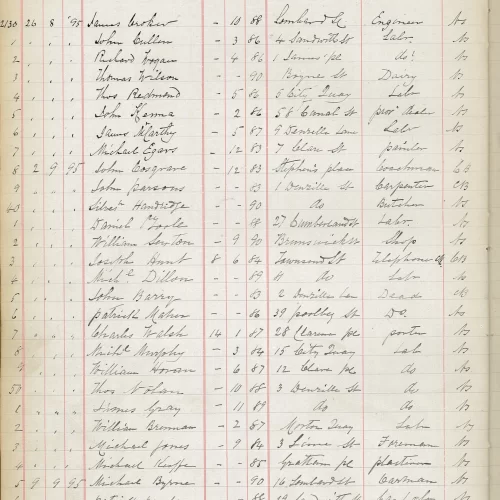 2130 26 8 '95 James Croker - 10 88 Lombard St Engineer No
1 " " " John Cullen - 3 86 4 Sandwith St Labr. No
2 " " " Richard - 4 86 1 James' pl do. No
3 " " " Thomas Wilson - - 90 Boyne St Dairy No
4 " " " Thos Redmond - 5 86 5 City Quay Lab No
5 " " " John Kenna - 2 86 58 Canal St provn dealer No
6 " " " James McCarthy - 5 87 9 Denzille Lane Labr No
7 " " " Michael Egars - 12 83 7 Clare St painter No
8 2 9 95 John Cosgrave - 12 83 Stephen's place Coachman CB
9 " " " John Parsons - - 83 1 Denzille St Carpenter CB
40 " " " Handidge - - 90 do Butcher No
1 " " " Daniel O'Toole - - 88 27 Cumberland St Labr. No
2 " " " William Sexton - 9 90 Brunswick St Shop No
3 " " " Joseph Hunt 8 6 84 Townsend St Telephone Ck CB
4 " " " Michl Dillon - - 89 11 do Lab No
5 " " " John Barry - - 83 2 Denzille Lane Dead CB
6 " " " Patrick Maher - - 86 39 Poolbeg St Do. No
7 " " " Charles Walsh 14 1 87 28 Clarence pl porter No
8 " " " Michl Murphy - 3 84 15 City Quay Lab No
9 " " " William Horan - 6 87 12 Clare pl do No
50 " " " Thos Nolan - 10 88 3 Denzille St do No
1 " " " James Gray - 11 89 do do No
2 " " " William Brennan - 2 87 Quay Lab No
3 " " " Michael Jones - 9 84 3 Lime St Foreman No
4 " " " Michael Keeffe - - 85 Grattan pl No
5 9 9 95 Michael Byrne - - 90 16 Lombard St Cartman No